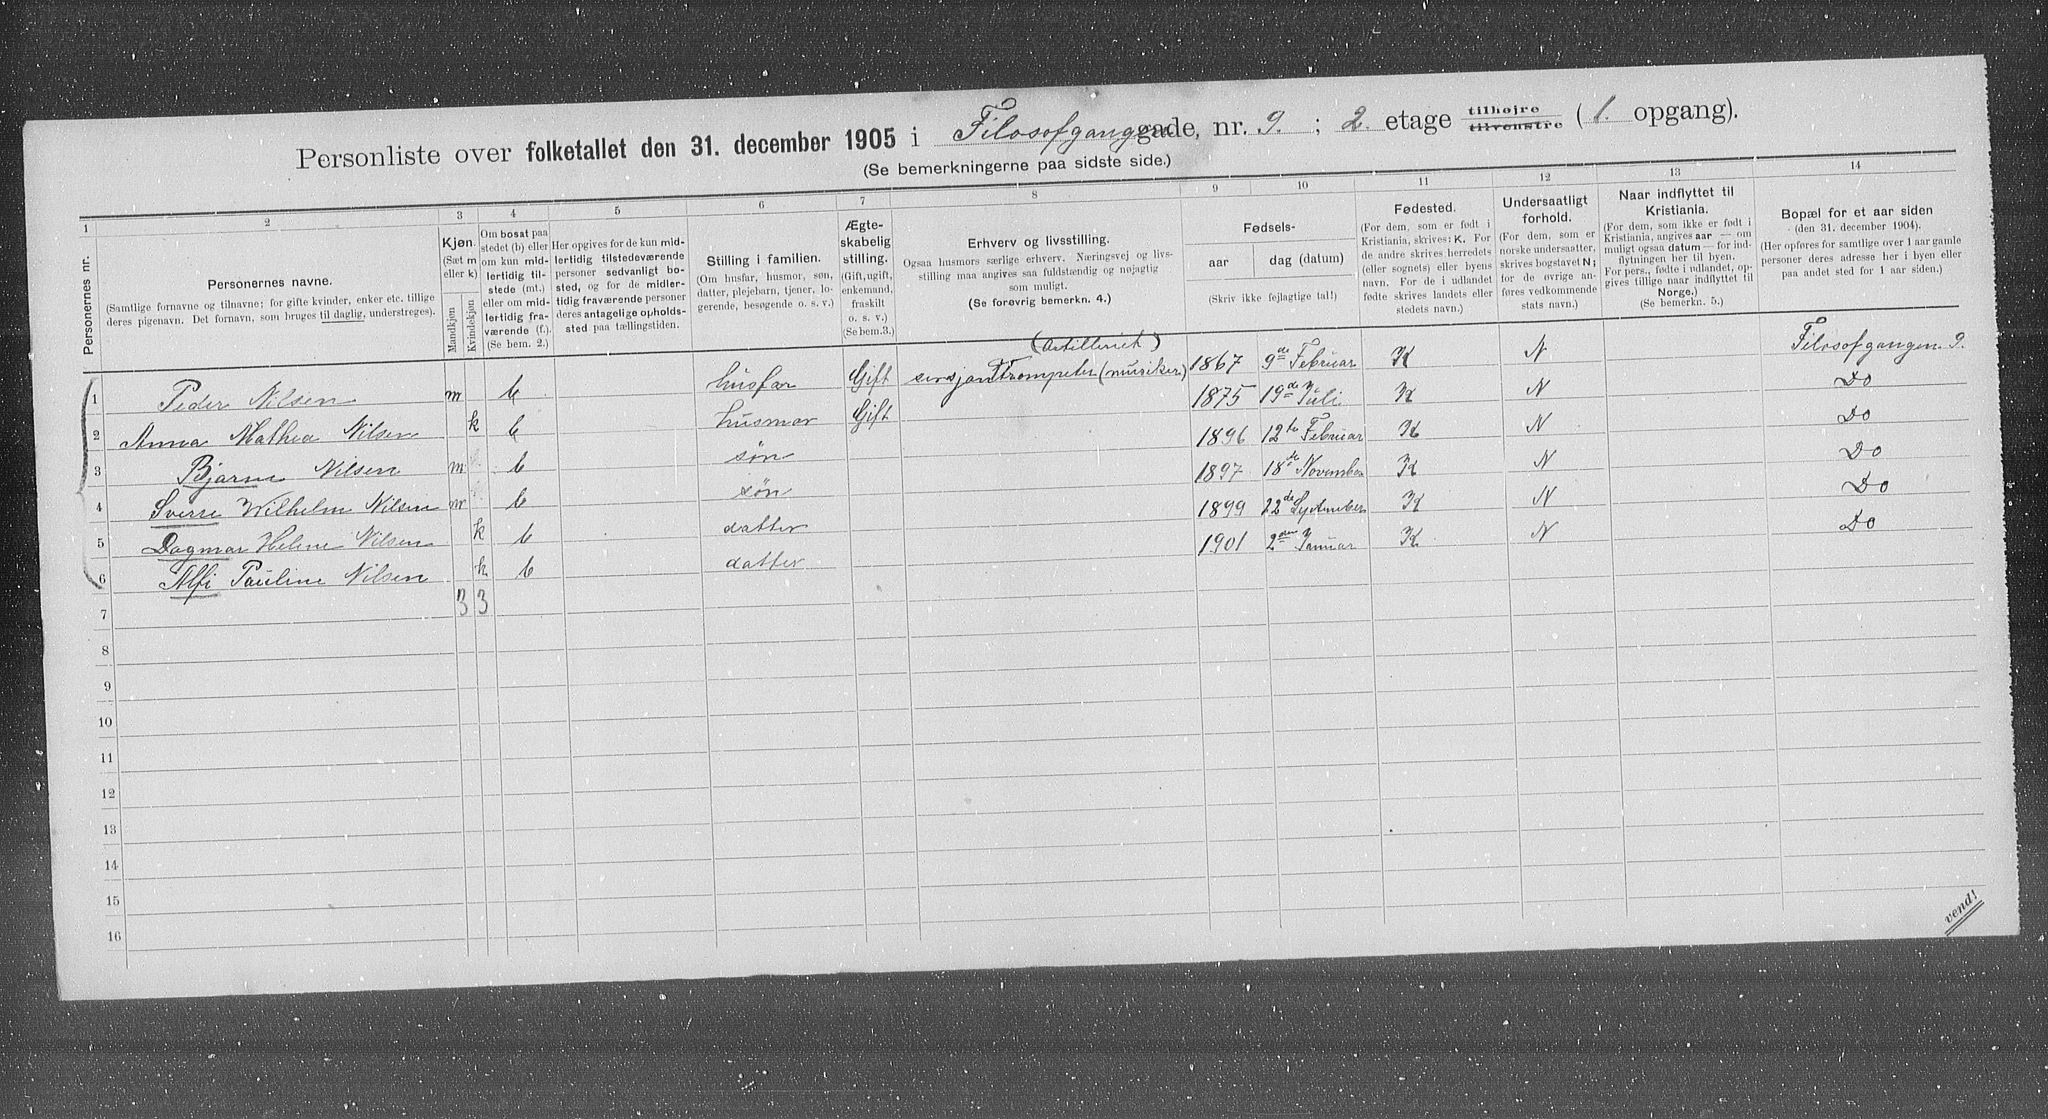 Personliste over folketallet den 31. december 1905 i Filosofgangen gade, nr. 9. ; 2. etage tilhøjre tilvenstre (1. opgang).
(Se bemerkningerne paa sidste side.)
1 2 3 4 5 6 7 8 9 10 11 12 13 14
Personernes nr.
Personernes navne.
(Samtlige fornavne og tilnavne; for gifte kvinder, enker etc. tillige
deres pigenavn. Det fornavn, som bruges til daglig, understreges).
Kjøn.
(Sæt m
eller k)
Mandkjøn
Kvindekjøn
Om bosat paa
stedet (b) eller
om kun mid-
lertidig til-
stede (mt.)
eller om mid-
lertidig fra-
værende (f.)
(Se bem. 2.)
Her opgives for de kun mid-
lertidig tilstedeværende
personer sedvanligt bo-
sted, og for de midler-
tidig fraværende personer
deres antagelige opholds-
sted paa tællingstiden.
Stilling i familien.
(Om husfar, husmor, søn,
datter, plejebarn, tjener, lo-
gerende, besøgende o. s. v.)
Ægte-
skabelig
stilling.
(Gift, ugift,
enkemand,
fraskilt
o. s. v.)
(Se bem.3.)
Erhverv og livsstilling.
Ogsaa husmors særlige erhverv. Næringsvej og livs-
stilling maa angives saa fuldstændig og nøjagtig
som muligt.
(Se forøvrig bemerkn. 4.)
Fødsels-
aar
dag (datum)
(Skriv ikke fejlagtige tal!)
Fødested.
(For dem, som er født i
Kristiania, skrives: K. For
de andre skrives herredets
(eller sognets) eller byens
navn. For de i udlandet
fødte skrives landets eller
stedets navn.)
Undersaatligt
forhold.
(For dem, som er
norske undersaatter,
skrives bogstavet N;
for de øvrige an-
føres vedkommende
stats navn.)
Naar indflyttet til
Kristiania.
(For dem, som ikke er født i
Kristiania, angives aar — om
muligt ogsaa datum — for ind-
flytningen her til byen.
For pers., fødte i udlandet, op-
gives tillige naar indflyttet til
Norge.)
(Se bemerkn. 5.)
Bopæl for et aar siden
(den 31. december 1904).
(Her opføres for samtlige over 1 aar gamle
personer deres adresse her i byen eller
paa andet sted for 1 aar siden.)
(Artilleriet)
1 Peder Nilsen m b husfar Gift serjant Trompeter (musiker) 1867 9de Februar K N Filosofgangen 9.
2 Anna Mathea Nilsen k b husmor Gift 1875 19de Juli K N Do
3 Bjarne Nilsen m b søn 1896 12te Februar K N Do
4 Sverre Wilhelm Nilsen m b søn 1897 18de November K N Do
5 Dagmar Helene Nilsen k b datter 1899 22de September K N Do
6 Alfi Pauline Nilsen k b datter 1901 2den Januar K N Do
7 3 3
8
9
10
11
12
13
14
15
16
vend!